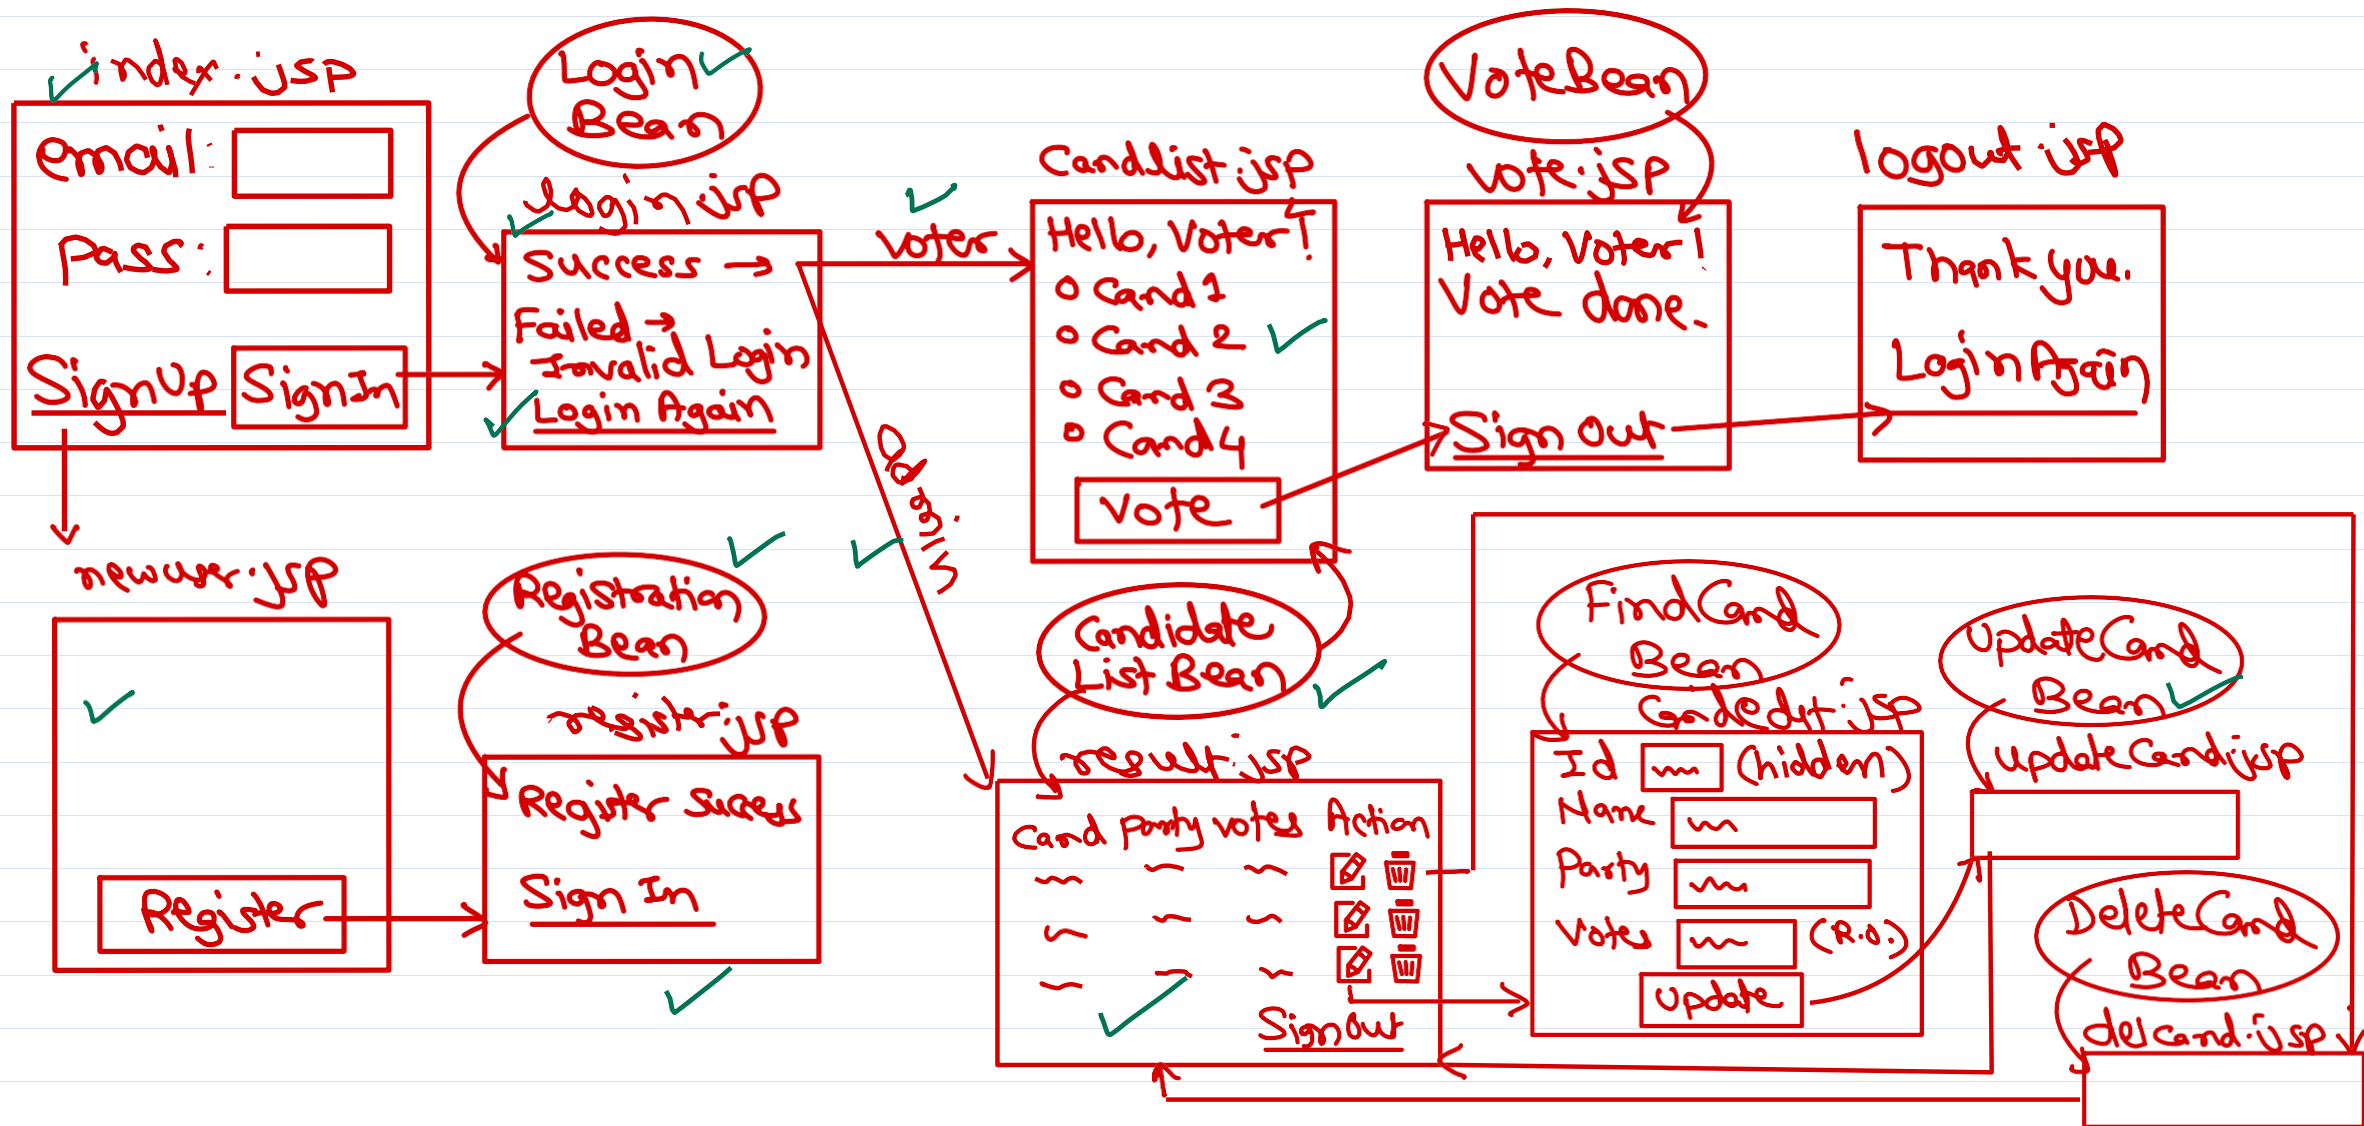 index.jsp
email:
Pass:
SignUp
SignIn
Login
Bean
login.jsp
Success →
Failed →
Invalid Login
Login Again
Voter
Admin
Candlist.jsp
Hello, Voter!
Cand 1
Cand 2
Cand 3
Cand 4
Vote
VoteBean
vote.jsp
Hello, Voter!
Vote done.
Sign Out
logout.jsp
Thank you.
Login Again
newuser.jsp
Register
Registration
Bean
register.jsp
Register Sucess
Sign In
Candidate
List Bean
result.jsp
Cand Party Votes Action
SignOut
FindCand
Bean
candedit.jsp
Id (hidden)
Name
Party
Votes (R.O.)
Update
UpdateCand
Bean
updateCand.jsp
DeleteCand
Bean
delcand.jsp